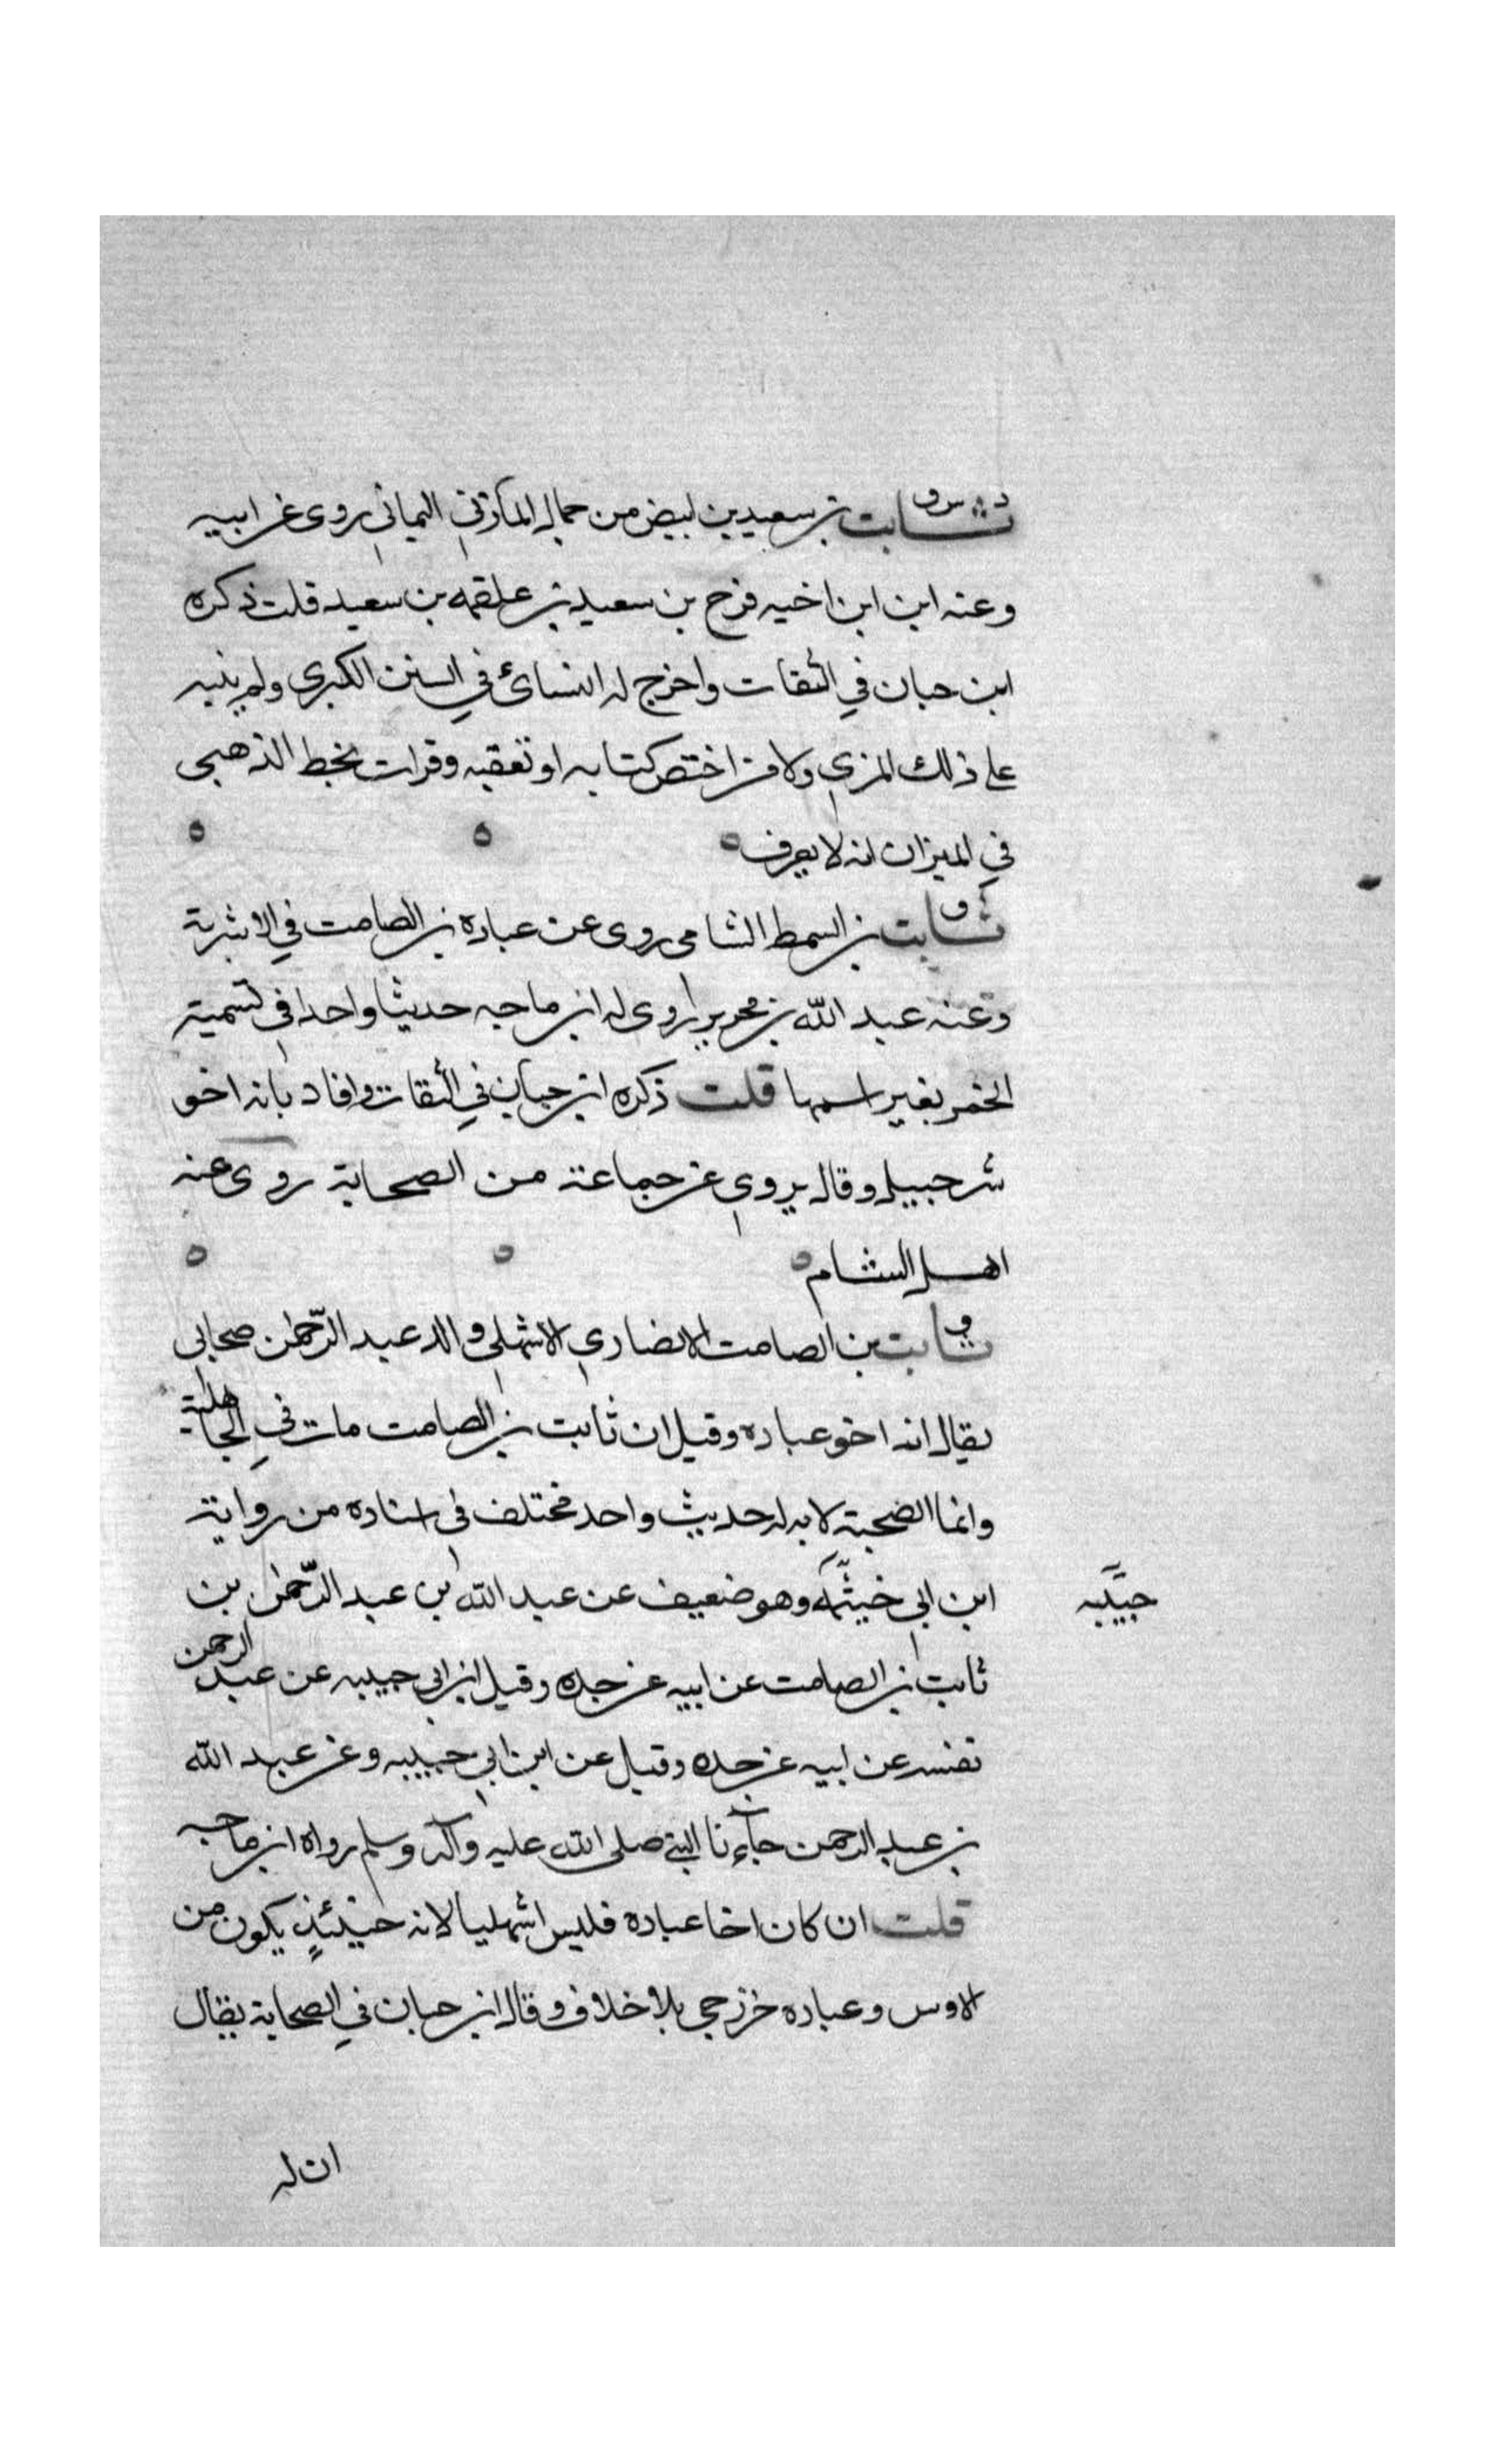 د س ق
ثابت بن سعيد بن ابيض من حمال الماربي اليماني روى عن ابيه
وعنه ابن ابن اخيه فرج بن سعيد بن علقمه بن سعيد قلت ذكره
ابن حبان في الثقات واخرج له النسائ في السنن الكبرى ولم ينبه
على ذلك المزي ولا من اختصر كتابه او تعقبه وقرات بخط الذهبي
في الميزان انه لا يعرف ه ه ه
ق
ثابت بن السمط الشامي روى عن عباده بن الصامت في الاشربة
وعنه عبد الله بن محيريز روى له ابن ماجه حديثا واحدا في تسمية
الخمر بغير اسمها قلت ذكره ابن حبان في الثقات وافاد بانه اخو
شرحبيل وقال يروي عن جماعة من الصحابة روى عنه
اهل الشام ه ه ه
ق
ثابت بن الصامت الانصاري الاشهلي والد عبد الرحمن صحابي
يقال انه اخو عباده وقيل ان ثابت بن الصامت مات في الجاهلية
وانما الصحبة لابنه له حديث واحد مختلف في اسناده من رواية
ابن ابي خيثمه وهو ضعيف عن عبد الله بن عبد الرحمن بن
حبيبه
ثابت بن الصامت عن ابيه عن جده وقيل ابن ابي حبيبه عن عبد الرحمن
نفسه عن ابيه عن جده وقيل عن ابن ابي حبيبه وعن عبد الله
بن عبد الرحمن جآءنا النبي صلى الله عليه وآله وسلم رواه ابن ماجه
قلت ان كان اخا عباده فليس اشهليا لانه حينئذ يكون من
الاوس وعباده خزرجي بلا خلاف وقال ابن حبان في الصحابة يقال
ان له